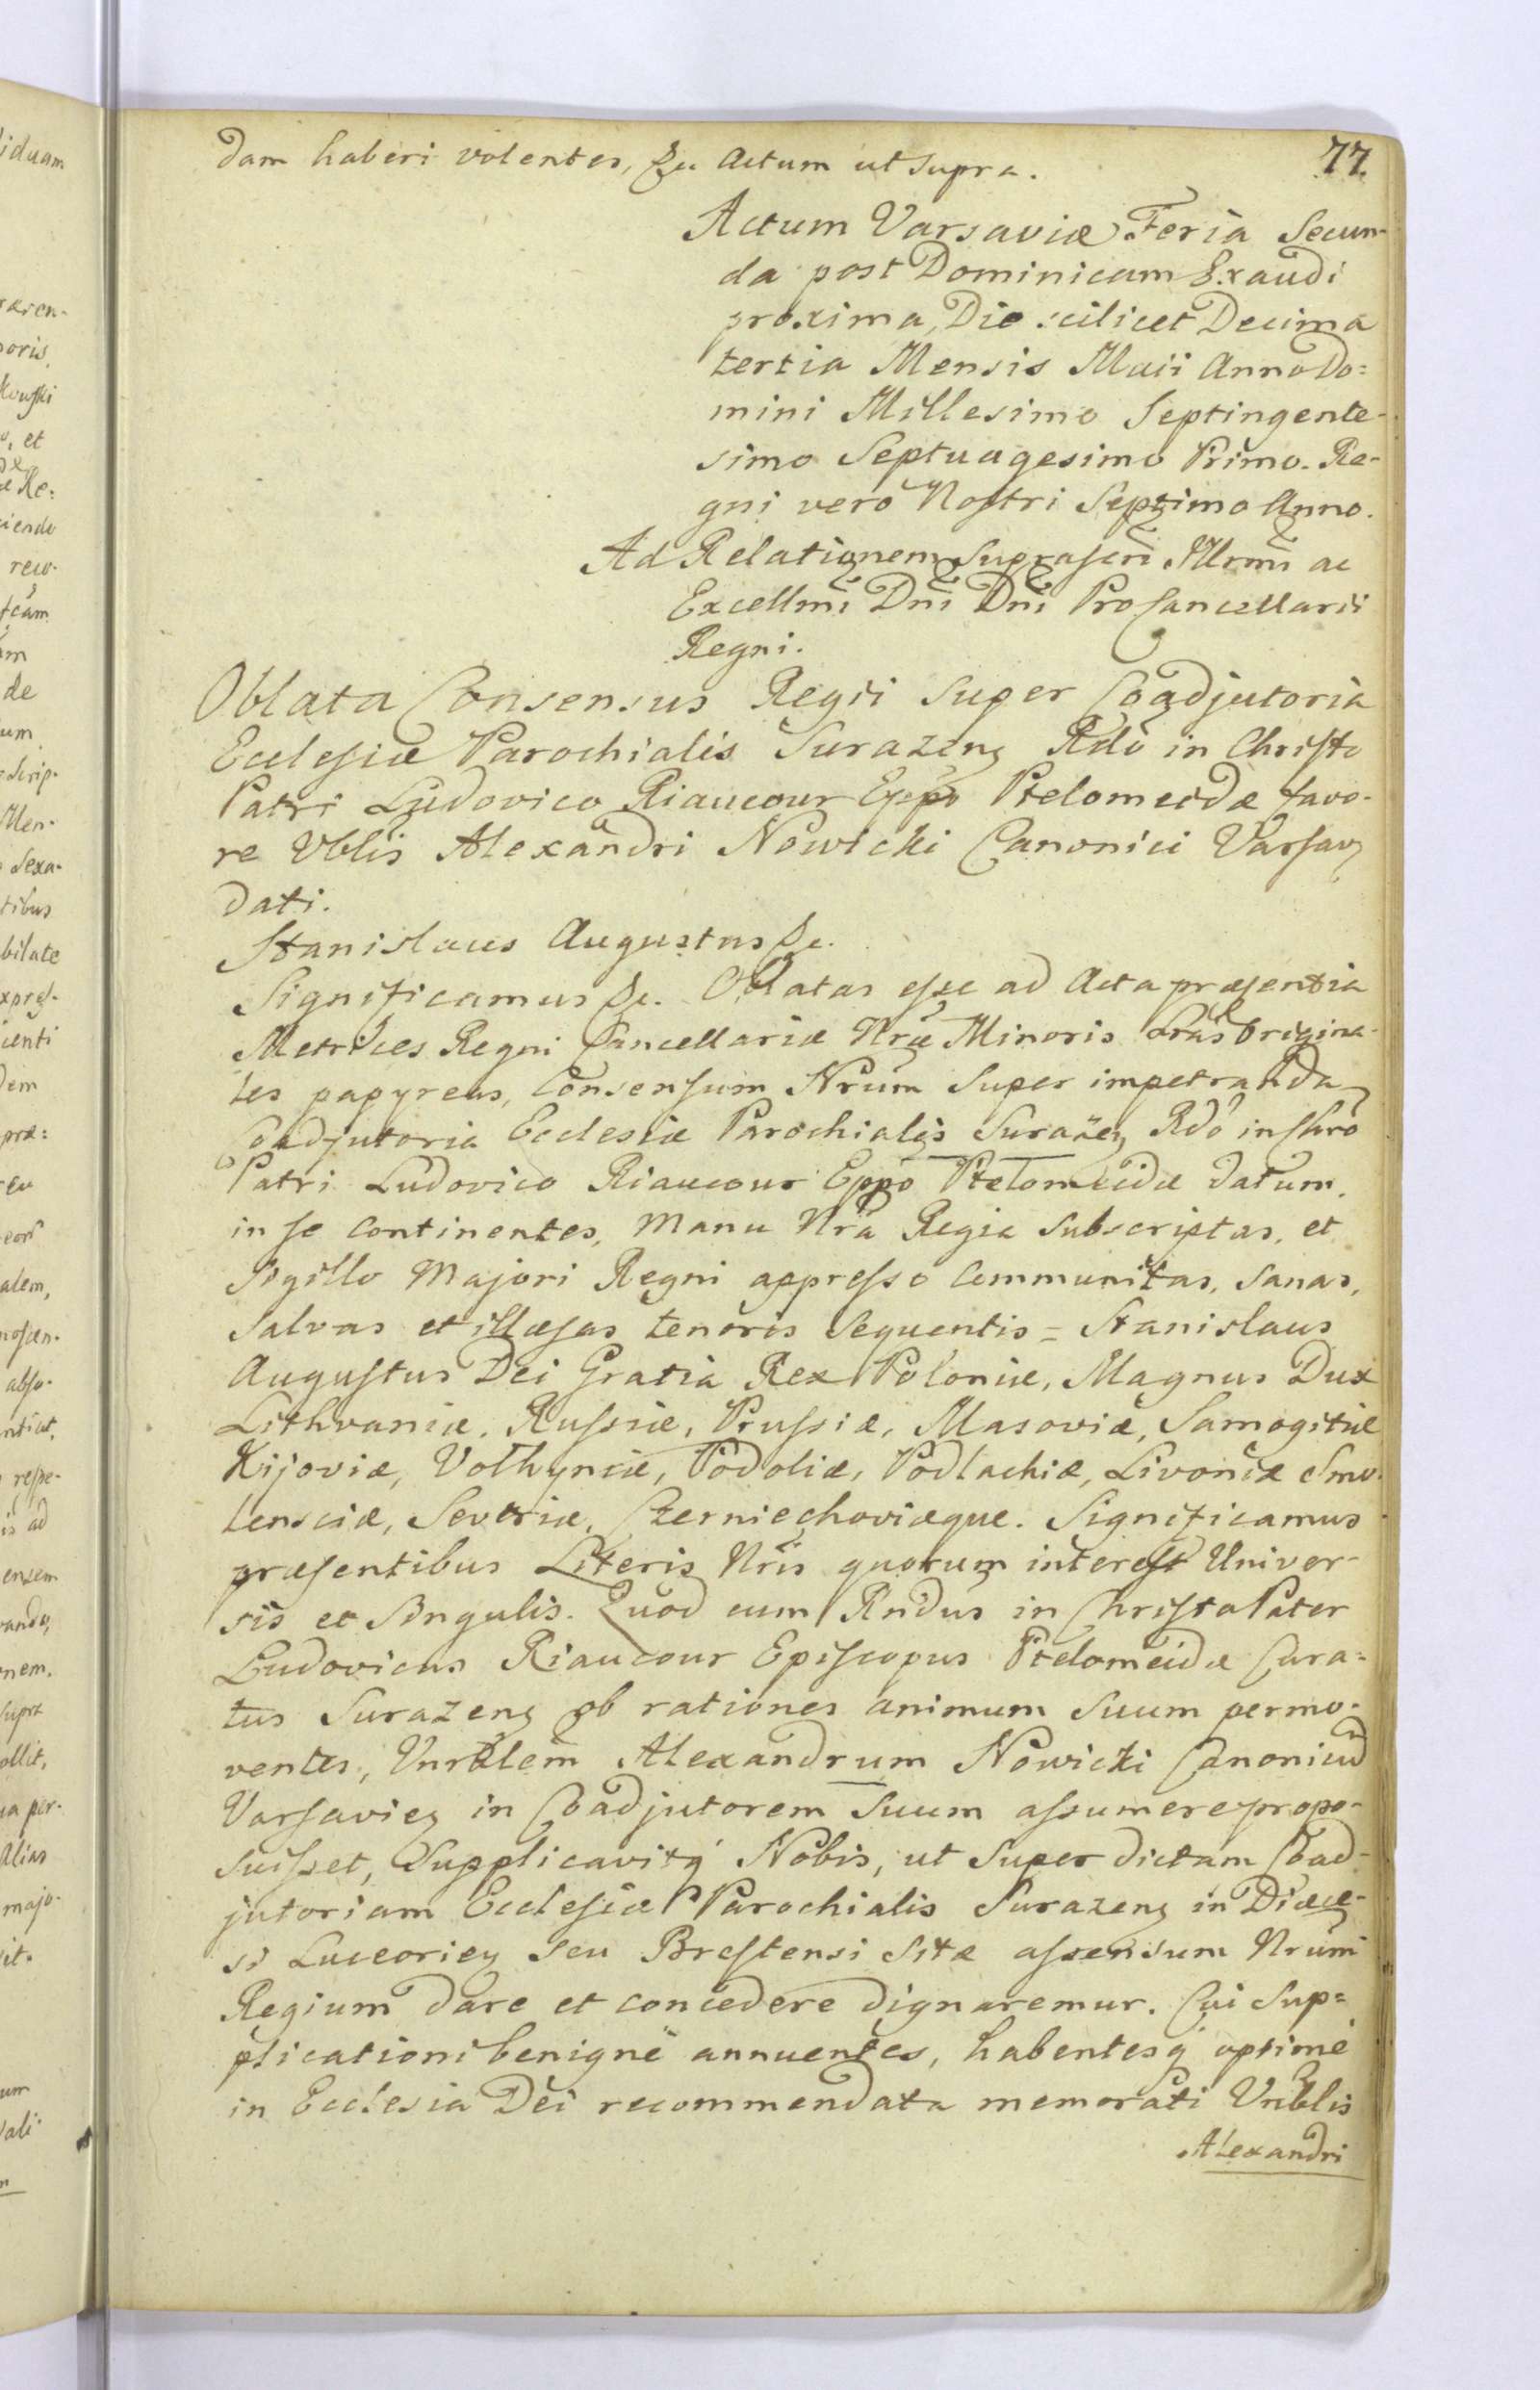 77.
dam haberi volentes, &c Actum ut supra.
Actum Varsaviæ Feria Secun-
da post Dominicam Exaudi
proxima, Die scilicet Decima
tertia Mensis Maii Anno Do=
mini Millesimo Septingente-
simo Septuagesimo Primo. Re-
gni vero Nostri Septimo Anno.
Ad Relationem Suprascri Illrmi ac
Excellmi Dni Dni ProCancellarii
Regni.
Oblata Consensus Regii super Coadjutoria
Ecclesiæ Parochialis Surazeng Rdo in Christo
Patri Ludovico Riaucour Eppo Ptelomeidæ favo-
re Vblis Alexandri Nowicki Canonici Varsav
dati.
Stanislaus Augustus &c.
Significamus &c. Oblatas esse ad Acta præsentia
Metrices Regni Cancellariæ Nræ Minoris Lras Origina-
les papyreas, Consensum Nrum super impetranda
Coadjutoria Ecclesiæ Parochialis Surazen Rdo in Chro
Patri Ludovico Riaucour Eppo Ptelomeidæ datum,
in se continentes, Manu Nra Regia subscriptas, et
Sigillo Majori Regni appresso Communitas, sanas,
salvas et illæsas tenoris sequentis = Stanislaus
Augustus Dei Gratia Rex Poloniæ, Magnus Dux
Lithvaniæ, Russiæ, Prussiæ, Masoviæ, Samogitiæ
Kijoviæ, Volhyniæ, Podoliæ, Podlachiæ, Livoniæ Smo-
lensciæ, Severiæ, Czerniechoviæque. Significamus
præsentibus Literis Nris quorum interest Univer-
sis et Singulis. Quod cum Rndus in Christo Pater
Ludovicus Riaucour Episcopus Ptelomeidæ Cura=
tus Surazeng ob rationes animum suum permo-
ventes, Vnrblem Alexandrum Nowicki Canonicum
Varsavien in Coadjutorem Suum assumere propo-
suisset, Supplicavitq Nobis, ut super dictam Coad-
jutoriam Ecclesiæ Parochialis Surazeng in Diæce-
si Luceorien seu Brestensi sitæ assensum Nrum
Regium dare et concedere dignaremur. Cui Sup=
plicationi benigne annuentes, habentesq optime
in Ecclesia Dei recommendata memorati Vnrblis
Alexandri